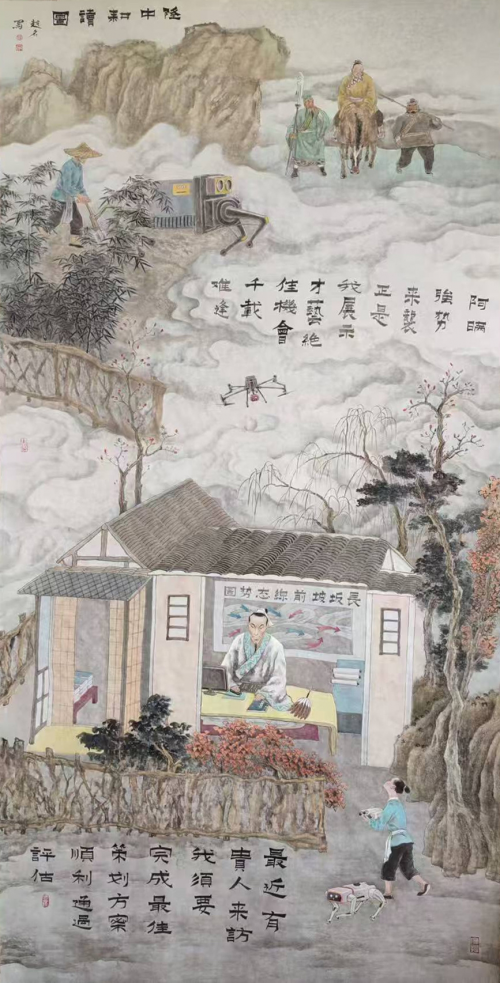 隆中耕讀圖
阿瞞
強勢
來襲
正是
我展示
才藝絕
佳機會
千載
難逢
長坂坡前線态勢圖
最近有
貴人來訪
我須要
完成最佳
策划方案
順利通過
評估